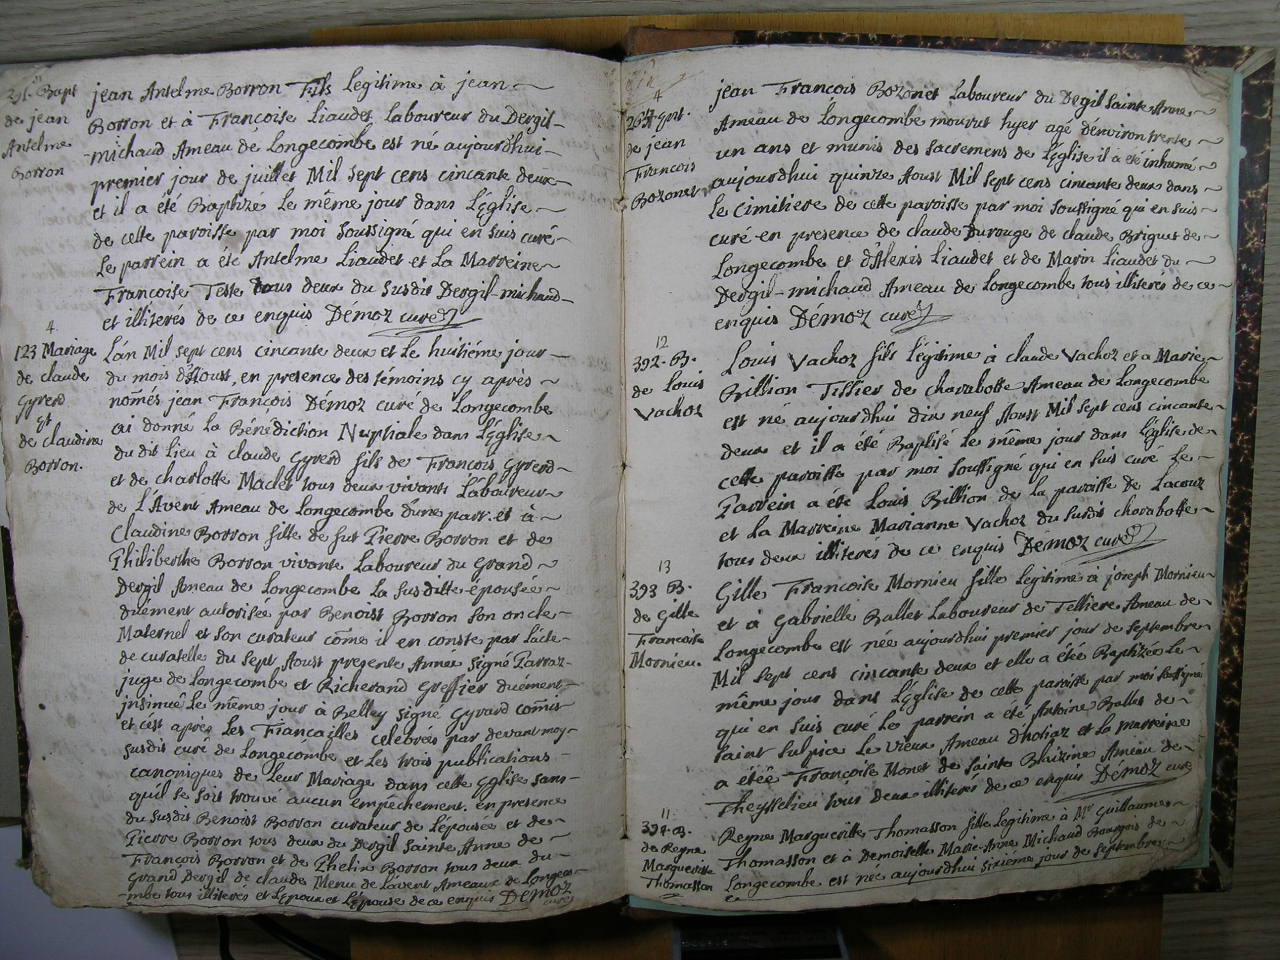 11
391. Bapt
de jean
Anselme
Borron
jean Antelme Borron Fils Legitime à jean
Borron et à Françoise Liaudet Laboureur du Dergil
michaud Ameau de Longecombe est né aujourd'hui
premier jour de juillet Mil sept cens cincante deux
et il a été Baptize Le même jour dans L'Eglise
de cette paroisse par moi soussigné qui en suis curé
Le parrein a été Antelme Liaudet et La Marreine
Françoise Teste tous deux du susdit Dergil-michaud
et illiterés de ce enquis Démoz curé
4
123 Mariage
de claude
Gyrerd
Et
de claudine
Borron.
L'an Mil sept cens cincante deux et Le huitiéme jour
du mois d'Aoust, en presence des témoins cy après
només jean François Démoz curé de Longecombe
ai donné La Bénédiction Nuptiale dans L'Eglise
du dit Lieu à claude Gyrerd fils de François Gyrerd
et de charlotte Maclet tous deux vivants Laboureur
de L'Avent Ameau de Longecombe d'une part. et à
Claudine Borron fille de fut Pierre Borron et de
Philiberthe Borron vivante Laboureur du Grand
Dergil Ameau de Longecombe La susditte épousée
duëment autorisée par Benoist Borron son oncle
Maternel et son curateur côme il en conste par L'acte
de curatelle du sept Aoust presente Année signé Parraz
juge de Longecombe et Richerand Greffier duément
insinué Le même jour à Belley signé Gyrard cômis
et c'est après Les Fiançailles celebrées par devant moy
susdit curé de Longecombe et Les trois publications
canoniques de Leur Mariage dans cette Eglise sans
qu'il se soit trouvé aucun empêchement. en presence
du susdit Benoist Borron curateur de L'épousée et de
Pierre Borron tous deux du Dergil Sainte Anne de
François Borron et de Phelix Borron tous deux du
Grand Dergil de claude Menu de L'avent Ameaux de Longecom
-mbe tous illiterés et L'Epoux et L'Epouse de ce enquis Démoz
curé
4
264 Ent.
de jean
François
Bozonet
jean François Bozonet Laboureur du Dergil Sainte Anne
Ameau de Longecombe mourut hyer agé d'environ trente
un ans et munis des sacremens de L'Eglise il a été inhumé
aujourdhui quinze Aoust Mil sept cens cincante deux dans
Le cimitiere de cette paroisse par moi soussigné qui en suis
curé en presence de claude Durouge de claude Briguet de
Longecombe et d'Alexis Liaudet et de Marin Liaudet du
Dergil-michaud Ameau de Longecombe tous illiterés de ce
enquis Démoz curé
12
392. B.
de Louis
Vachoz
Louis Vachoz fils Légitime à claude Vachoz et a Marie
Billion Tissier de charabotte Ameau de Longecombe
est né aujourdhui dix neuf Aoust Mil sept cens cincante
deux et il a été Baptisé Le même jour dans L'Eglise de
cette paroisse par moi soussigné qui en suis curé Le
Parrein a été Louis Billion de La paroisse de Lacoux
et La Marreine Marianne Vachoz du susdit charabotte
tous deux illiterés de ce enquis Démoz curé
13
393 B.
de Gille
Françoise
Mornieu.
Gille Françoise Mornieu fille Legitime à joseph Mornieu
et à Gabrielle Ballet Laboureur de Telliere Ameau de
Longecombe est née aujourdhui premier jour de septembre
Mil sept cens cincante deux et elle a été Baptizée Le
même jour dans L'Eglise de cette paroisse par moi soussigné
qui en suis curé Le parrein a été Antoine Ballet de
saint sulpice Le Vieux Ameau d'holiaz et La marreine
a étée Françoise Monet de Sainte Blaizine Ameau de
Theysselieu tous deux illiterés de ce enquis Démoz curé
11
394. B.
de Reyne
Margueritte
Thomasson
Reyne Margueritte Thomasson fille Legitime à Mr Guillaume
Thomasson et à Demoiselle Marie-Anne Michaud Bourgois de
Longecombe est née aujourdhui sixiéme jour de septembre